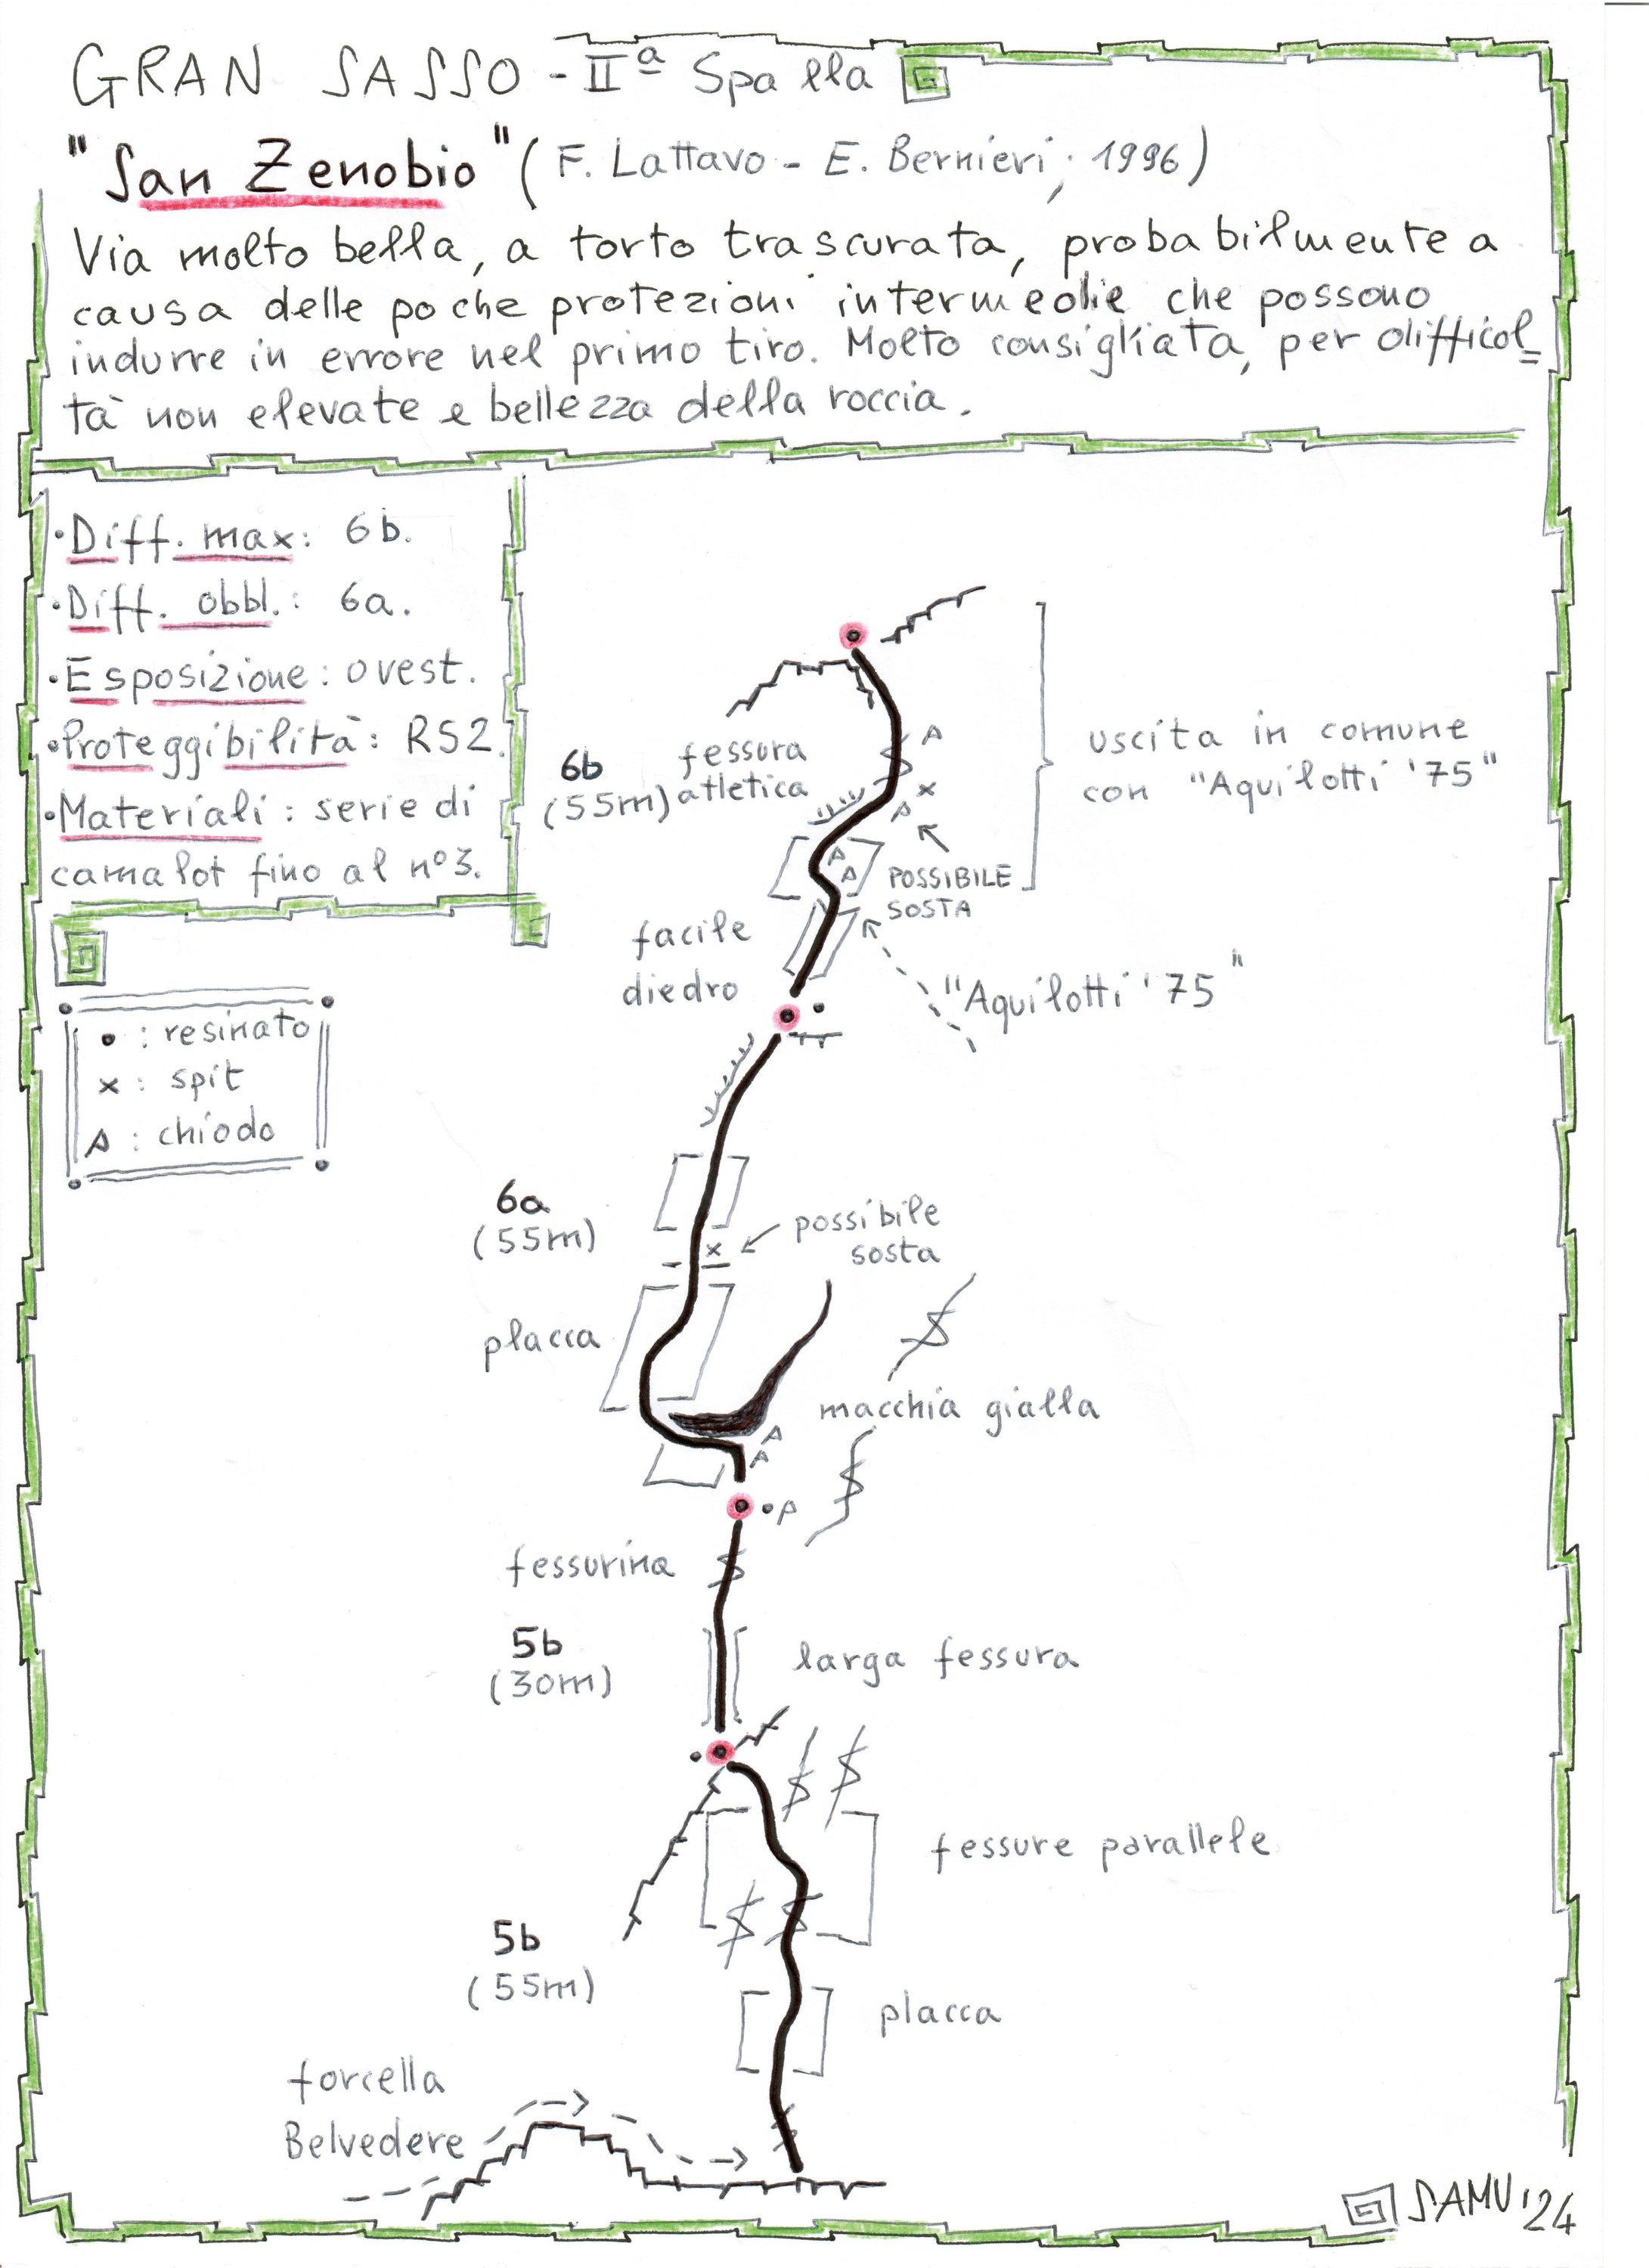 GRAN SASSO - IIª Spalla
"San Zenobio" (F. Lattavo - E. Bernieri, 1996)
Via molto bella, a torto trascurata, probabilmente a
causa delle poche protezioni intermedie che possono
indurre in errore nel primo tiro. Molto consigliata, per difficol=
tà non elevate e bellezza della roccia.
•Diff. max: 6b.
•Diff. obbl.: 6a.
•Esposizione: ovest.
•Proteggibilità: RS2.
•Materiali: serie di
camalot fino al n°3.
• : resinato
x : spit
A : chiodo
uscita in comune
con "Aquilotti '75"
6b
(55m)
fessura
atletica
A
x
A
A
A
POSSIBILE
SOSTA
facile
diedro
"Aquilotti '75"
6a
(55m)
x
possibile
sosta
placca
macchia gialla
A
A
•A
fessurina
5b
(30m)
larga fessura
fessure parallele
5b
(55m)
placca
forcella
Belvedere
SAMU '24